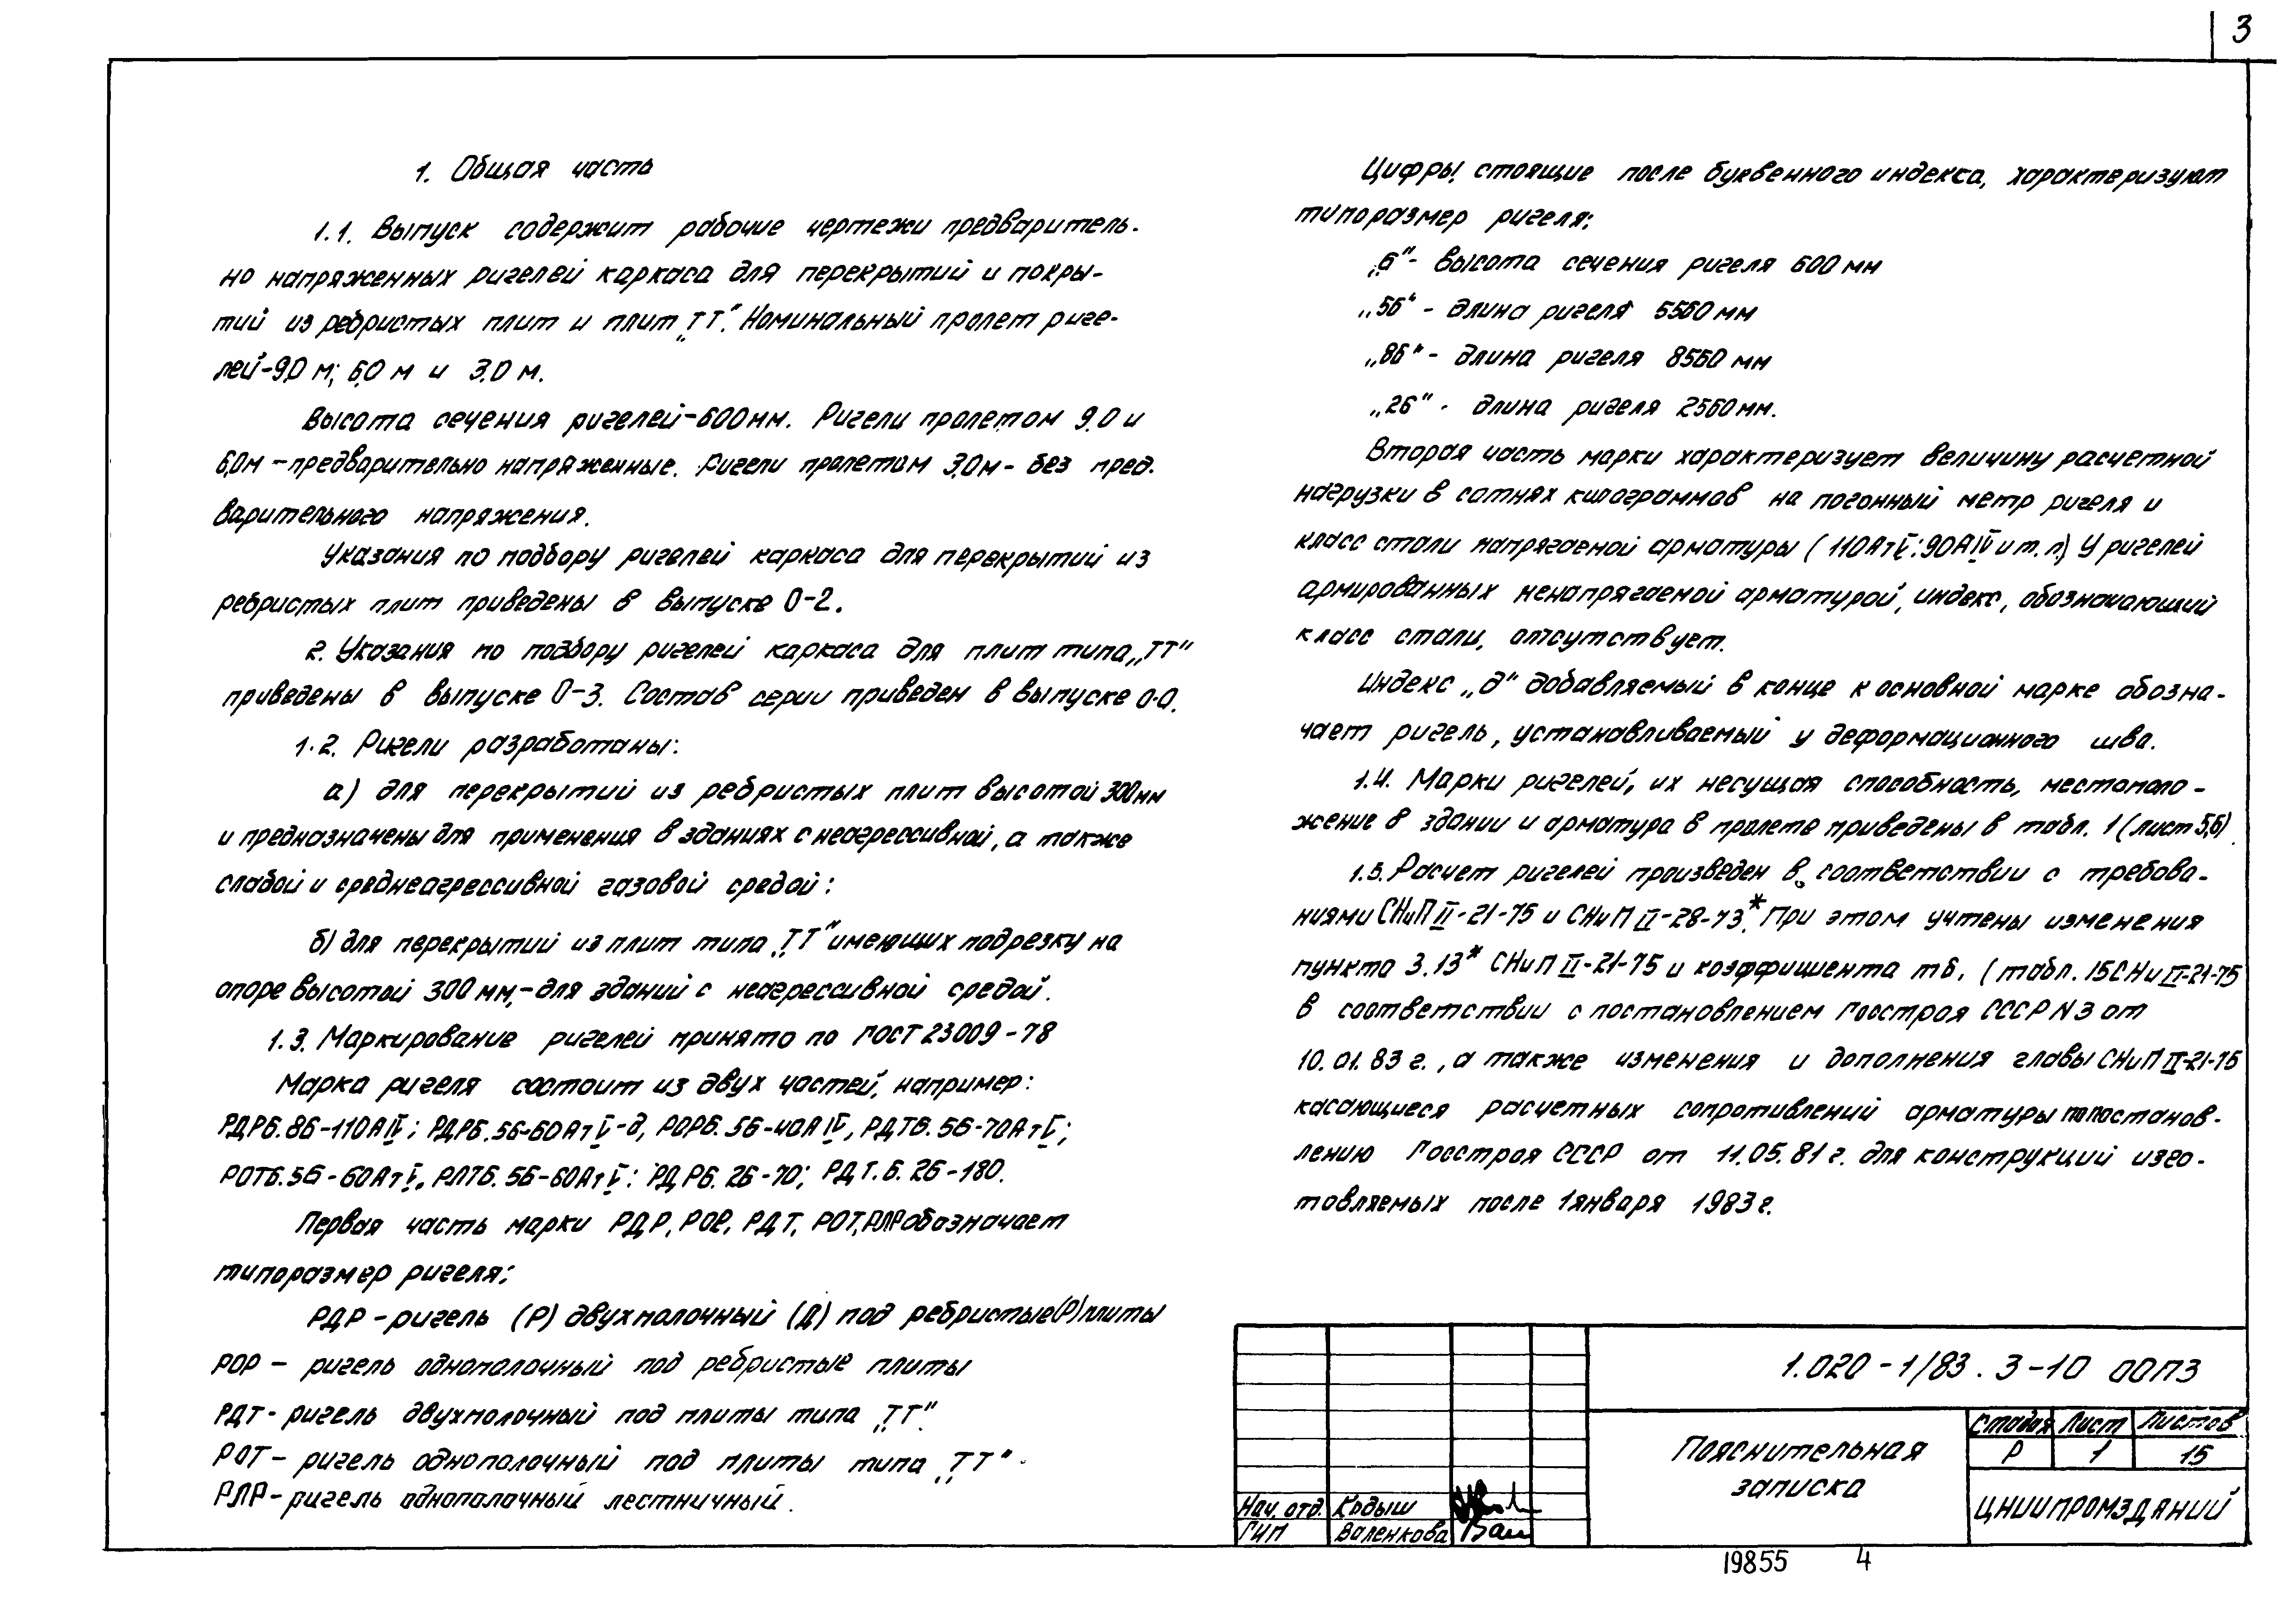 3
1. Общая часть
1.1. Выпуск содержит рабочие чертежи предваритель-
но напряженных ригелей каркаса для перекрытий и покры-
тий из ребристых плит и плит „ТТ". Номинальный пролет риге-
лей-9,0 м; 6,0 м и 3,0 м.
Высота сечения ригелей-600мм. Ригели пролетом 9,0 и
6,0м -предварительно напряженные. Ригели пролетом 3,0м- без пред-
варительного напряжения.
Указания по подбору ригелей каркаса для перекрытий из
ребристых плит приведены в выпуске 0-2.
2. Указания по подбору ригелей каркаса для плит типа „ТТ"
приведены в выпуске 0-3. Состав серии приведен в выпуске 0-0.
1.2. Ригели разработаны:
а) для перекрытий из ребристых плит высотой 300мм
и предназначены для применения в зданиях с неагрессивной, а также
слабой и среднеагрессивной газовой средой:
б) для перекрытий из плит типа „ТТ" имеющих подрезку на
опоре высотой 300 мм,-для зданий с неагрессивной средой.
1.3. Маркирование ригелей принято по ГОСТ 23009-78
Марка ригеля состоит из двух частей, например:
РДР6.86-110АIV; РДР6.56-60АтV-д, РОР6.56-40АIV, РДТ6.56-70АтV;
РОТ6.56-60АтV, РЛТ6.56-60АтV; РДР6.26-70; РДТ.6.26-180.
Первая часть марки РДР, РОР, РДТ, РОТ,РЛР обозначает
типоразмер ригеля:
РДР -ригель (Р) двухполочный (Д) под ребристые(Р)плиты
РОР - ригель однополочный под ребристые плиты
РДТ- ригель двухполочный под плиты типа „ТТ".
РОТ- ригель однополочный под плиты типа „ТТ".
РЛР-ригель однополочный лестничный.
Цифры, стоящие после буквенного индекса, характеризуют
типоразмер ригеля:
„6"- высота сечения ригеля 600 мм
„56" - длина ригеля 5560 мм
„86" - длина ригеля 8560 мм
„26" - длина ригеля 2560мм.
Вторая часть марки характеризует величину расчетной
нагрузки в сотнях килограммов на погонный метр ригеля и
класс стали напрягаемой арматуры (110АтV; 90АIV и т.п.) У ригелей
армированных ненапрягаемой арматурой, индекс, обозначающий
класс стали, отсутствует.
Индекс „д" добавляемый в конце к основной марке обозна-
чает ригель, устанавливаемый у деформационного шва.
1.4. Марки ригелей, их несущая способность, местополо-
жение в здании и арматура в пролете приведены в табл. 1 (лист 5,6).
1.5. Расчет ригелей произведен в соответствии с требова-
ниями СНиП II-21-75 и СНиП II-28-73*. При этом учтены изменения
пункта 3.13* СНиП II-21-75 и коэффициента mб, (табл. 15 СНиII-21-75
в соответствии с постановлением Госстроя СССР N3 от
10.01.83 г., а также изменения и дополнения главы СНиП II-21-75
касающиеся расчетных сопротивлений арматуры по постанов-
лению Госстроя СССР от 11.05.81 г. для конструкций изго-
товляемых после 1января 1983г.
1.020-1/83. 3-10 00ПЗ
Пояснительная
записка
Стадия Лист Листов
Р 1 15
ЦНИИПРОМЗДАНИЙ
Нач. отд. Кодыш
ГИП Валенкова
19855 4